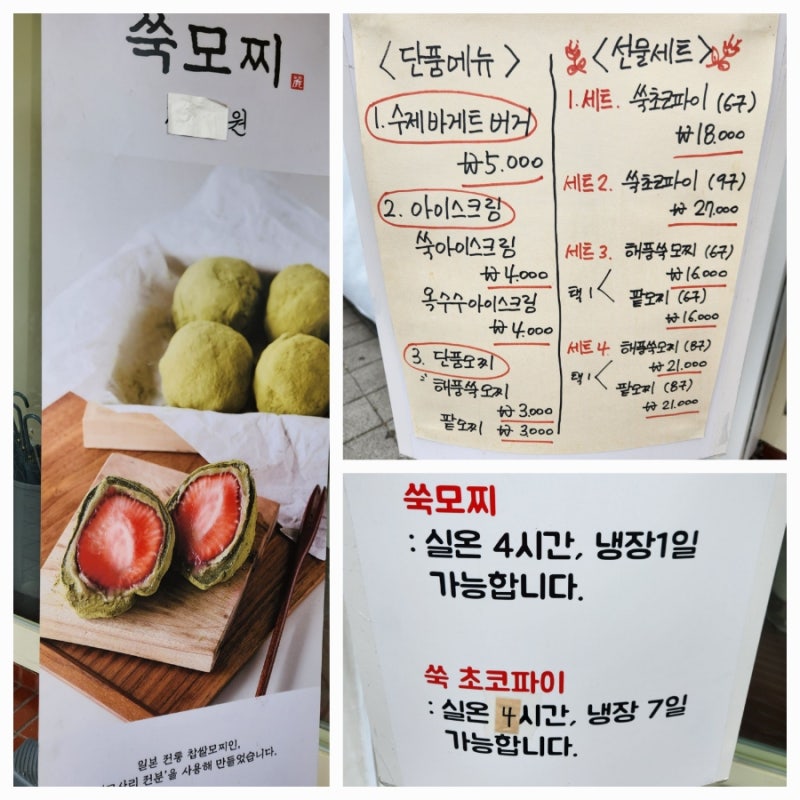 쑥모찌
원
일본 전통 찹쌀모찌인,
전분'을 사용해 만들었습니다.
<단품메뉴>
1. 수제바게트버거
₩5.000
2. 아이스크림
쑥아이스크림
₩4.000
옥수수아이스크림
₩4.000
3. 단품모찌
해풍쑥모찌
₩3.000
팥모찌 ₩3.000
<선물세트>
1.세트. 쑥초코파이 (6구)
₩18.000
세트2. 쑥초코파이 (9구)
₩27.000
세트3. 해풍쑥모찌 (6구)
₩16.000
택1< 팥모찌 (6구)
₩16.000
세트4. 해풍쑥모찌 (8구)
₩21.000
택1< 팥모찌 (8구)
₩21.000
쑥모찌
: 실온 4시간, 냉장1일
가능합니다.
쑥 초코파이
: 실온 4시간, 냉장 7일
가능합니다.